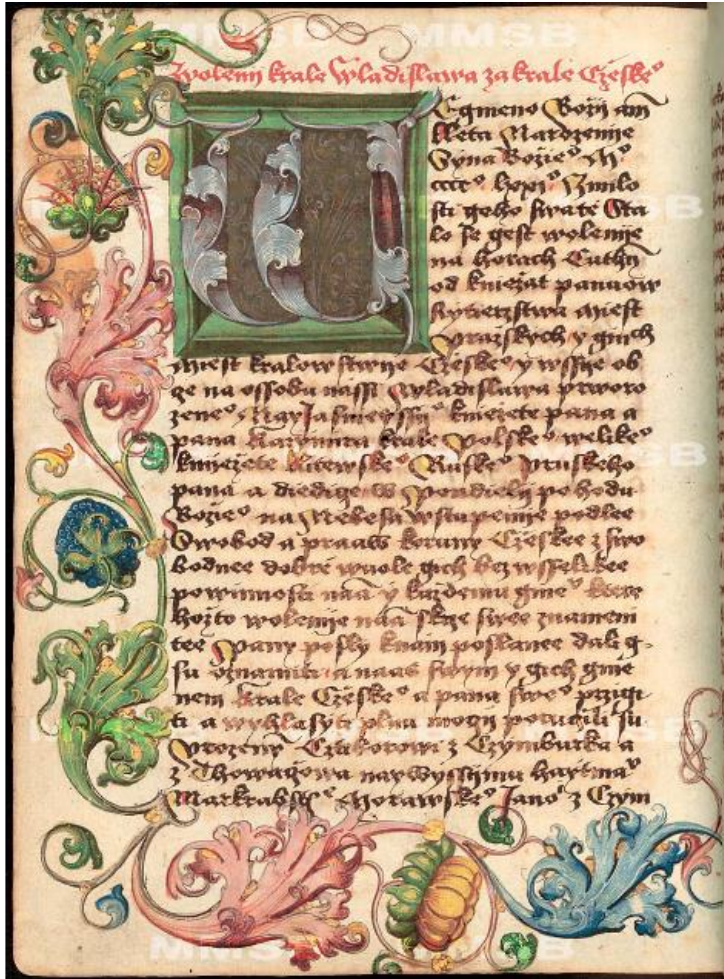 Zwolenij krale Wladislawa za krale Czeskeº
W Egmeno Bozij am
Letha Narozenije
Syna Bozieº Mº
ccccº lxxiº Zmilo
sti geho swate Sta
lo se gest wolenije
na horach Cuthn
od kniezat panuow
Rytierzstwa miest
Prazskych y gnich
miest kralowstwije Czeskeº y wssije ob
ze na ossobu nassi Wladislawa prworo
zeneº Nayjasnieyssijº kniezete pana a
pana Kazymira krale Polskeº welikeº
knijezete Litewskeº Ruskeº pruskeho
pana a diedice W Pondielij po hodu
Bozieº na Nebesa wstupenije podlee
Swobod a praaw koruny Czeskee z swo
bodnee dobre wuole gich bez wsselikee
powinnosti naam y kazdemu gineº ktere
hozto wolenije naam skrze swee znameni
tee Pany posly knam poslanee dali g-
su oznamiti a naas swym y gich gme
nem krale Czeskeº a pana sweº przigi-
ti a wyhlasyti plnu mocij porucili su
Urozeny Cztiborowi z Czymburka a
z Thowaczowa naywyssijmu haytmaº
Markrabstº Morawskeº Janoº z Czym